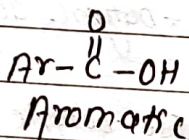 O
||
Ar-C-OH
Aromatic